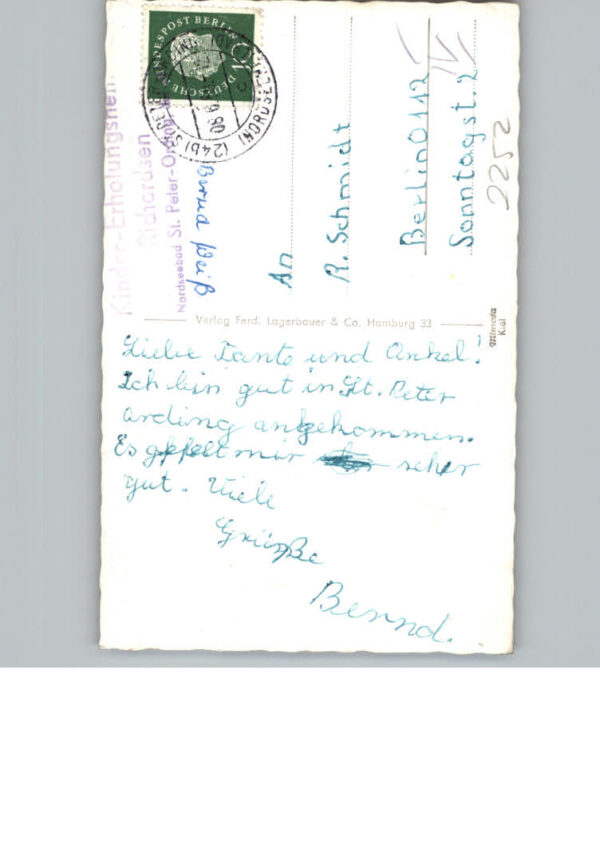 Kinder-Erholungsheim
Richardsen
Nordseebad St. Peter-Ording
Bernd Weiß
DEUTSCHE BUNDESPOST BERLIN
10
(24b) ST. PETER-
(NORDSEEHEIL
An
R. Schmidt
Berlin 0112
Sonntagst. 2
IV
2252
Verlag Ferd. Lagerbauer & Co. Hamburg 33
Kiel
Liebe Tante und Onkel!
Ich bin gut in St. Peter
Arding angekommen.
Es geffelt mir seher
gut. Viele
Grüße
Bernnd.